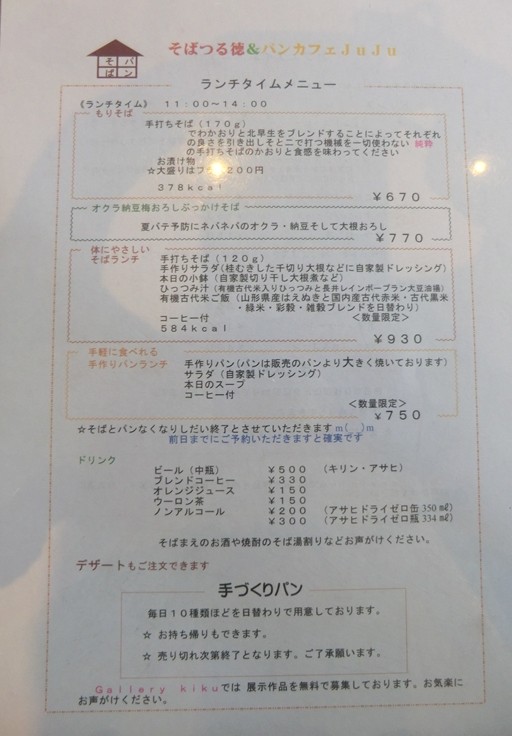 そば
パン
そばつる徳&パンカフェJuJu
ランチタイムメニュー
《ランチタイム》 11:00～14:00
もりそば
手打ちそば(170g)
でわかおりと北早生をブレンドすることによってそれぞれ
の良さを引き出しそと二で打つ機械を一切使わない 純粋
の手打ちそばのかおりと食感を味わってください
お漬け物
☆大盛りはプラス200円
378kcal
￥670
オクラ納豆梅おろしぶっかけそば
夏バテ予防にネバネバのオクラ・納豆そして大根おろし
￥770
体にやさしい
そばランチ
手打ちそば(120g)
手作りサラダ(桂むきした千切り大根などに自家製ドレッシング)
本日の小鉢(自家製切り干し大根煮など)
ひっつみ汁(有機古代米入りひっつみと長井レインボープラン大豆油揚)
有機古代米ご飯(山形県産はえぬきと国内産古代赤米・古代黒米
・緑米・彩穀・雑穀ブレンドを日替わり)
コーヒー付 <数量限定>
584kcal
￥930
手軽に食べれる
手作りパンランチ
手作りパン(パンは販売のパンより大きく焼いております)
サラダ(自家製ドレッシング)
本日のスープ
コーヒー付
<数量限定>
￥750
☆そばとパンなくなりしだい終了とさせていただきますm(__)m
前日までにご予約いただきますと確実です
ドリンク
ビール(中瓶) ￥500 (キリン・アサヒ)
ブレンドコーヒー ￥330
オレンジジュース ￥150
ウーロン茶 ￥150
ノンアルコール ￥200 (アサヒドライゼロ缶350㎖)
￥300 (アサヒドライゼロ瓶334㎖)
そばまえのお酒や焼酎のそば湯割りなどお声がけください。
デザートもご注文できます
手づくりパン
毎日10種類ほどを日替わりで用意しております。
☆ お持ち帰りもできます。
☆ 売り切れ次第終了となります。ご了承願います。
Gallery kikuでは 展示作品を無料で募集しております。お気楽に
お声がけください。